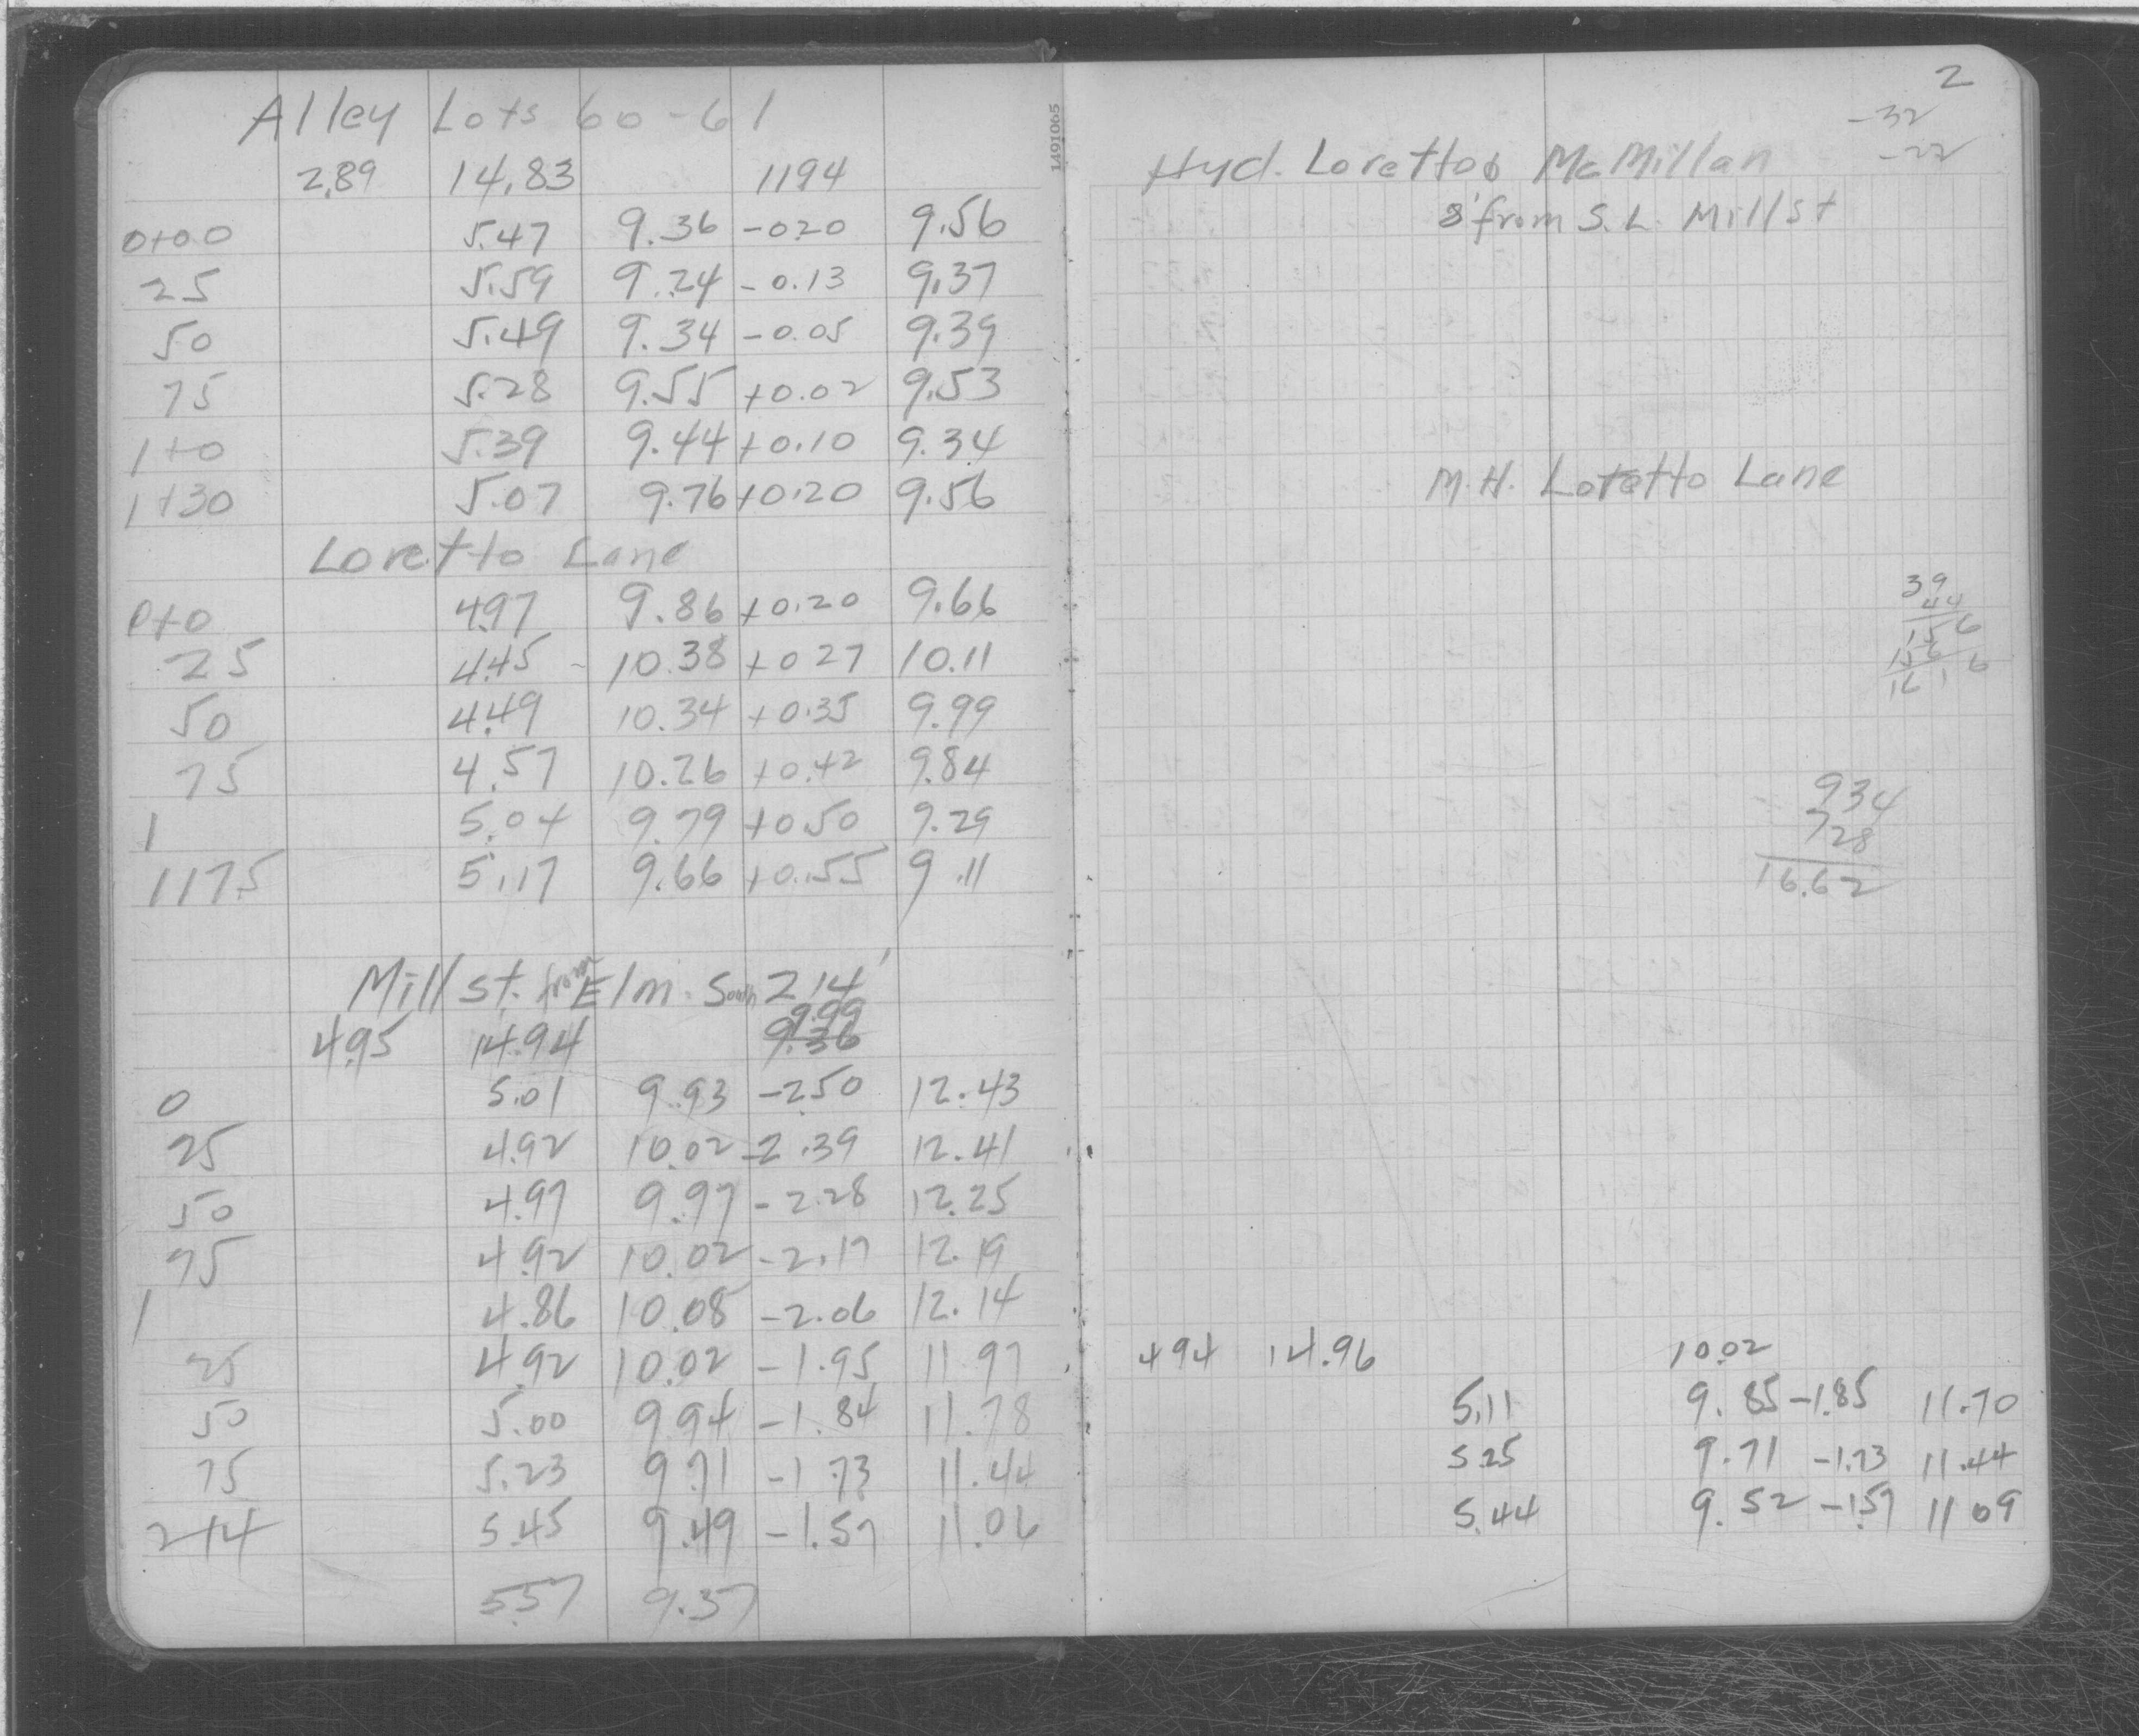 Alley Lots 60-61
2.89 14.83 1194
0+00 5.47 9.36 -020 9.56
25 5.59 9.24 -0.13 9.37
50 5.49 9.34 -0.05 9.39
75 5.28 9.55 +0.02 9.53
1+0 5.39 9.44 +0.10 9.34
1+30 5.07 9.76 +0.20 9.56
Loretto Lane
0+0 4.97 9.86 +0.20 9.66
25 4.45 10.38 +027 10.11
50 4.49 10.34 +0.35 9.99
75 4.57 10.26 +0.42 9.84
1 5.04 9.79 +0.50 9.29
1175 5.17 9.66 +0.55 9.11
Mill st. from Elm. South 214'
9.99
4.95 14.94 9.36
0 5.01 9.93 -2.50 12.43
25 4.92 10.02 -2.39 12.41
50 4.97 9.97 -2.28 12.25
75 4.92 10.02 -2.17 12.19
1 4.86 10.08 -2.06 12.14
25 4.92 10.02 -1.95 11.97
50 5.00 9.94 -1.84 11.78
75 5.23 9.71 -1.73 11.44
2+14 5.45 9.49 -1.57 11.06
5.57 9.37
1491065
2
-32
-22
Hyd. Loretto & McMillan
8' from S.L. Mill st
M.H. Loretto Lane
39
44
156
156
1616
934
728
16.62
494 14.96 10.02
5.11 9.85 -1.85 11.70
5.25 9.71 -1.73 11.44
5.44 9.52 -1.57 11 09